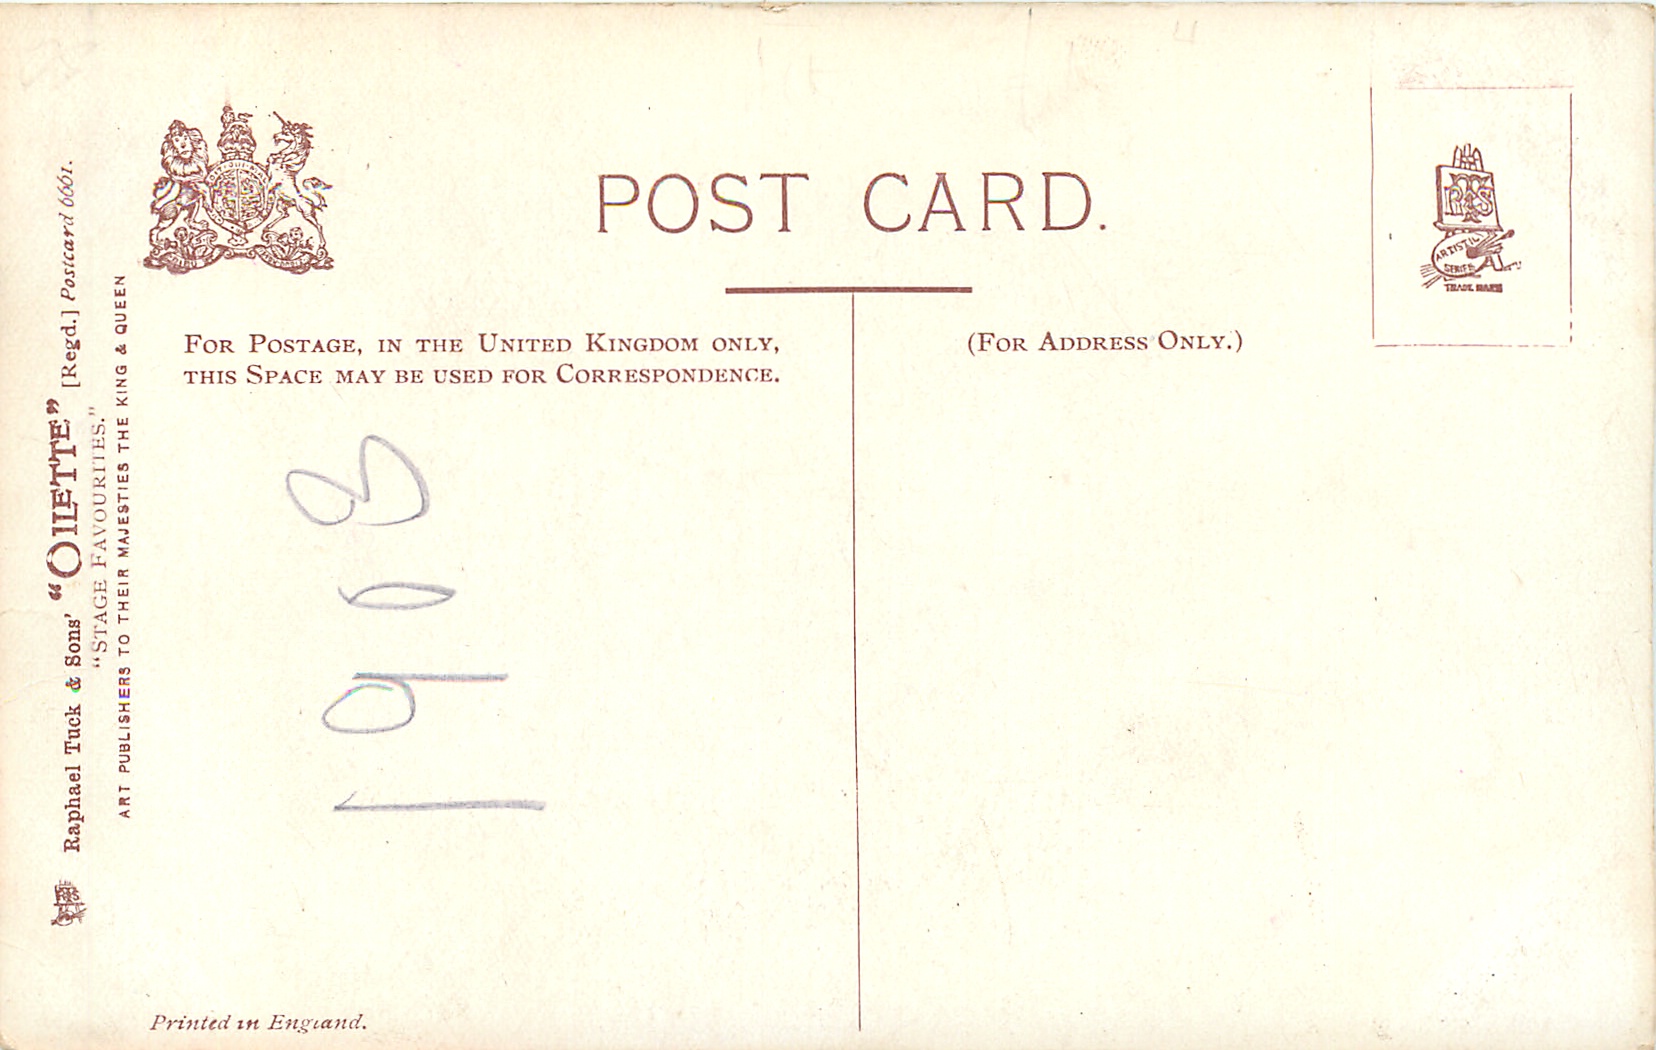 Raphael Tuck & Sons' "OILETTE" [Regd.] Postcard 6661.
"STAGE FAVOURITES."
ART PUBLISHERS TO THEIR MAJESTIES THE KING & QUEEN
POST CARD.
FOR POSTAGE, IN THE UNITED KINGDOM ONLY,
THIS SPACE MAY BE USED FOR CORRESPONDENCE.
(FOR ADDRESS ONLY.)
1908
ARTISTIC
SERIES
TRADE MARK
Printed in England.